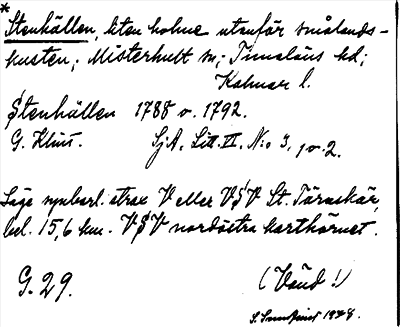 *
Stenhällen, liten holme utanför smålands-
kusten; Misterhult sn; Tunaläns hd;
Kalmar l.
Stenhällen 1788 o. 1792.
G. Klint. SjA. Litt. VI. N:o 3, 1 o. 2.
Läge uppenb. strax V eller VSV St. Tärnskär,
bel. 15,6 km. VSV nordöstra karthörnet.
G. 29. (Vänd!)
1948.